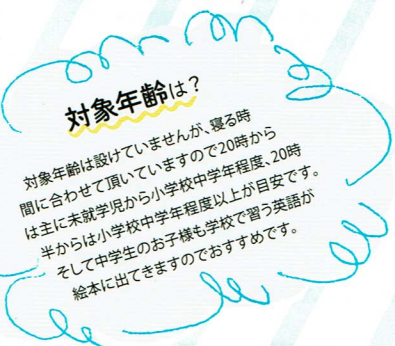 対象年齢は？
対象年齢は設けていませんが、寝る時
間に合わせて頂いていますので20時から
は主に未就学児から小学校中学年程度、20時
半からは小学校中学年程度以上が目安です。
そして中学生のお子様も学校で習う英語が
絵本に出てきますのでおすすめです。